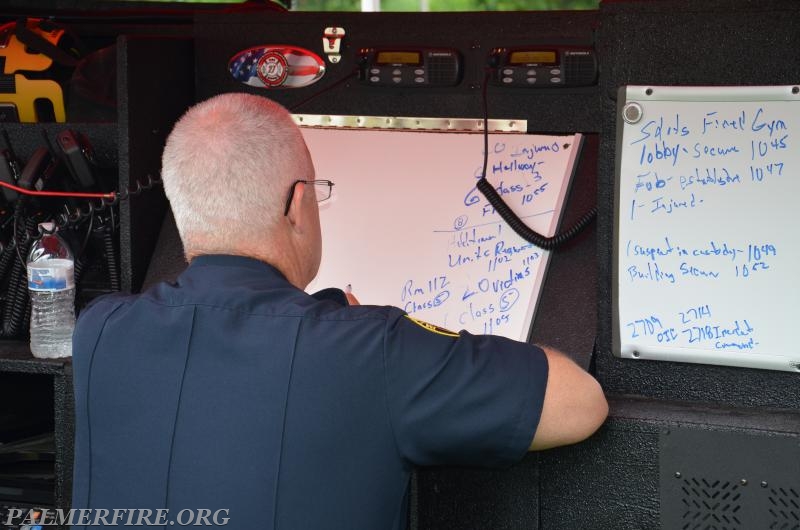 0 Injured
Hallway -
3
6 class -
1055
Additional
Units Requested
1102 1103
Rm 112
Class 5
20 victims
Class 5
1109
Fired Gym
lobby - Secure 1045
established 1047
1 - Injured -
1 suspect in custody - 1049
Building Secure 1052
2709 2714
OIC 2718
Command -
PALMERFIRE.ORG